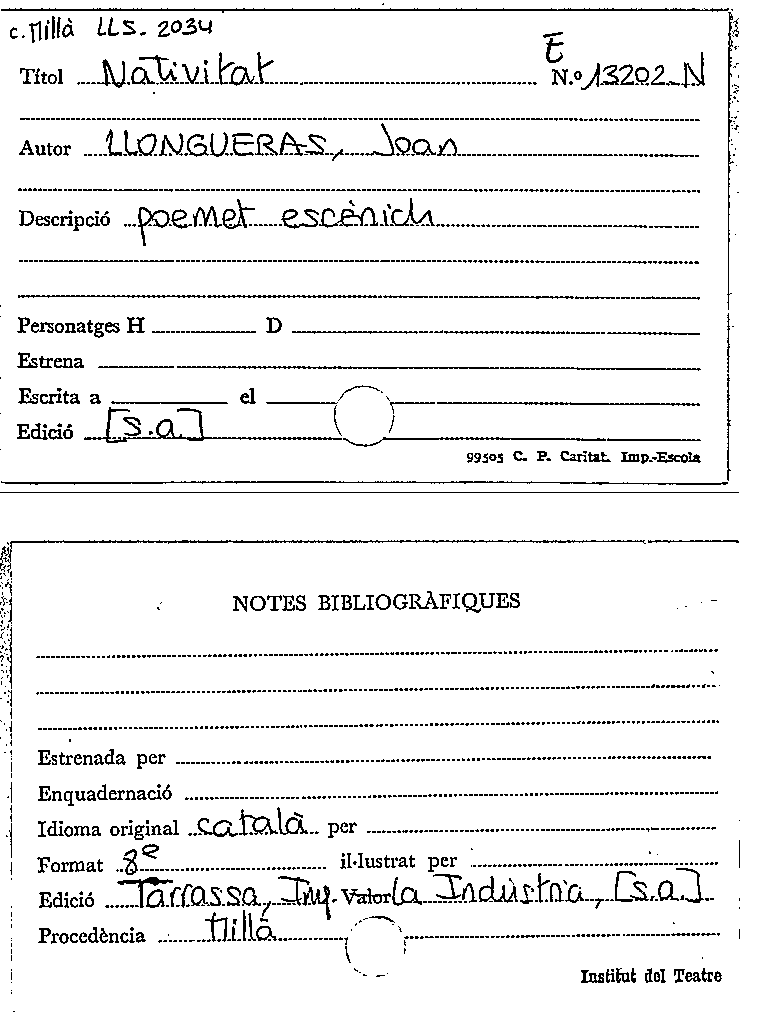 c. Millà LLS. 2034
E
Títol Nativitat N.º 13202 N
Autor LLONGUERAS, Joan
Descripció poemet escènich
Personatges H D
Estrena
Escrita a el
Edició [s.a.]
99505 C. P. Caritat. Imp.-Escola
NOTES BIBLIOGRÀFIQUES
Estrenada per
Enquadernació
Idioma original català per
Format 8º il·lustrat per
Edició Tarrassa, Imp. Valor la Indústria, [s.a.]
Procedència Millà
Institut del Teatre